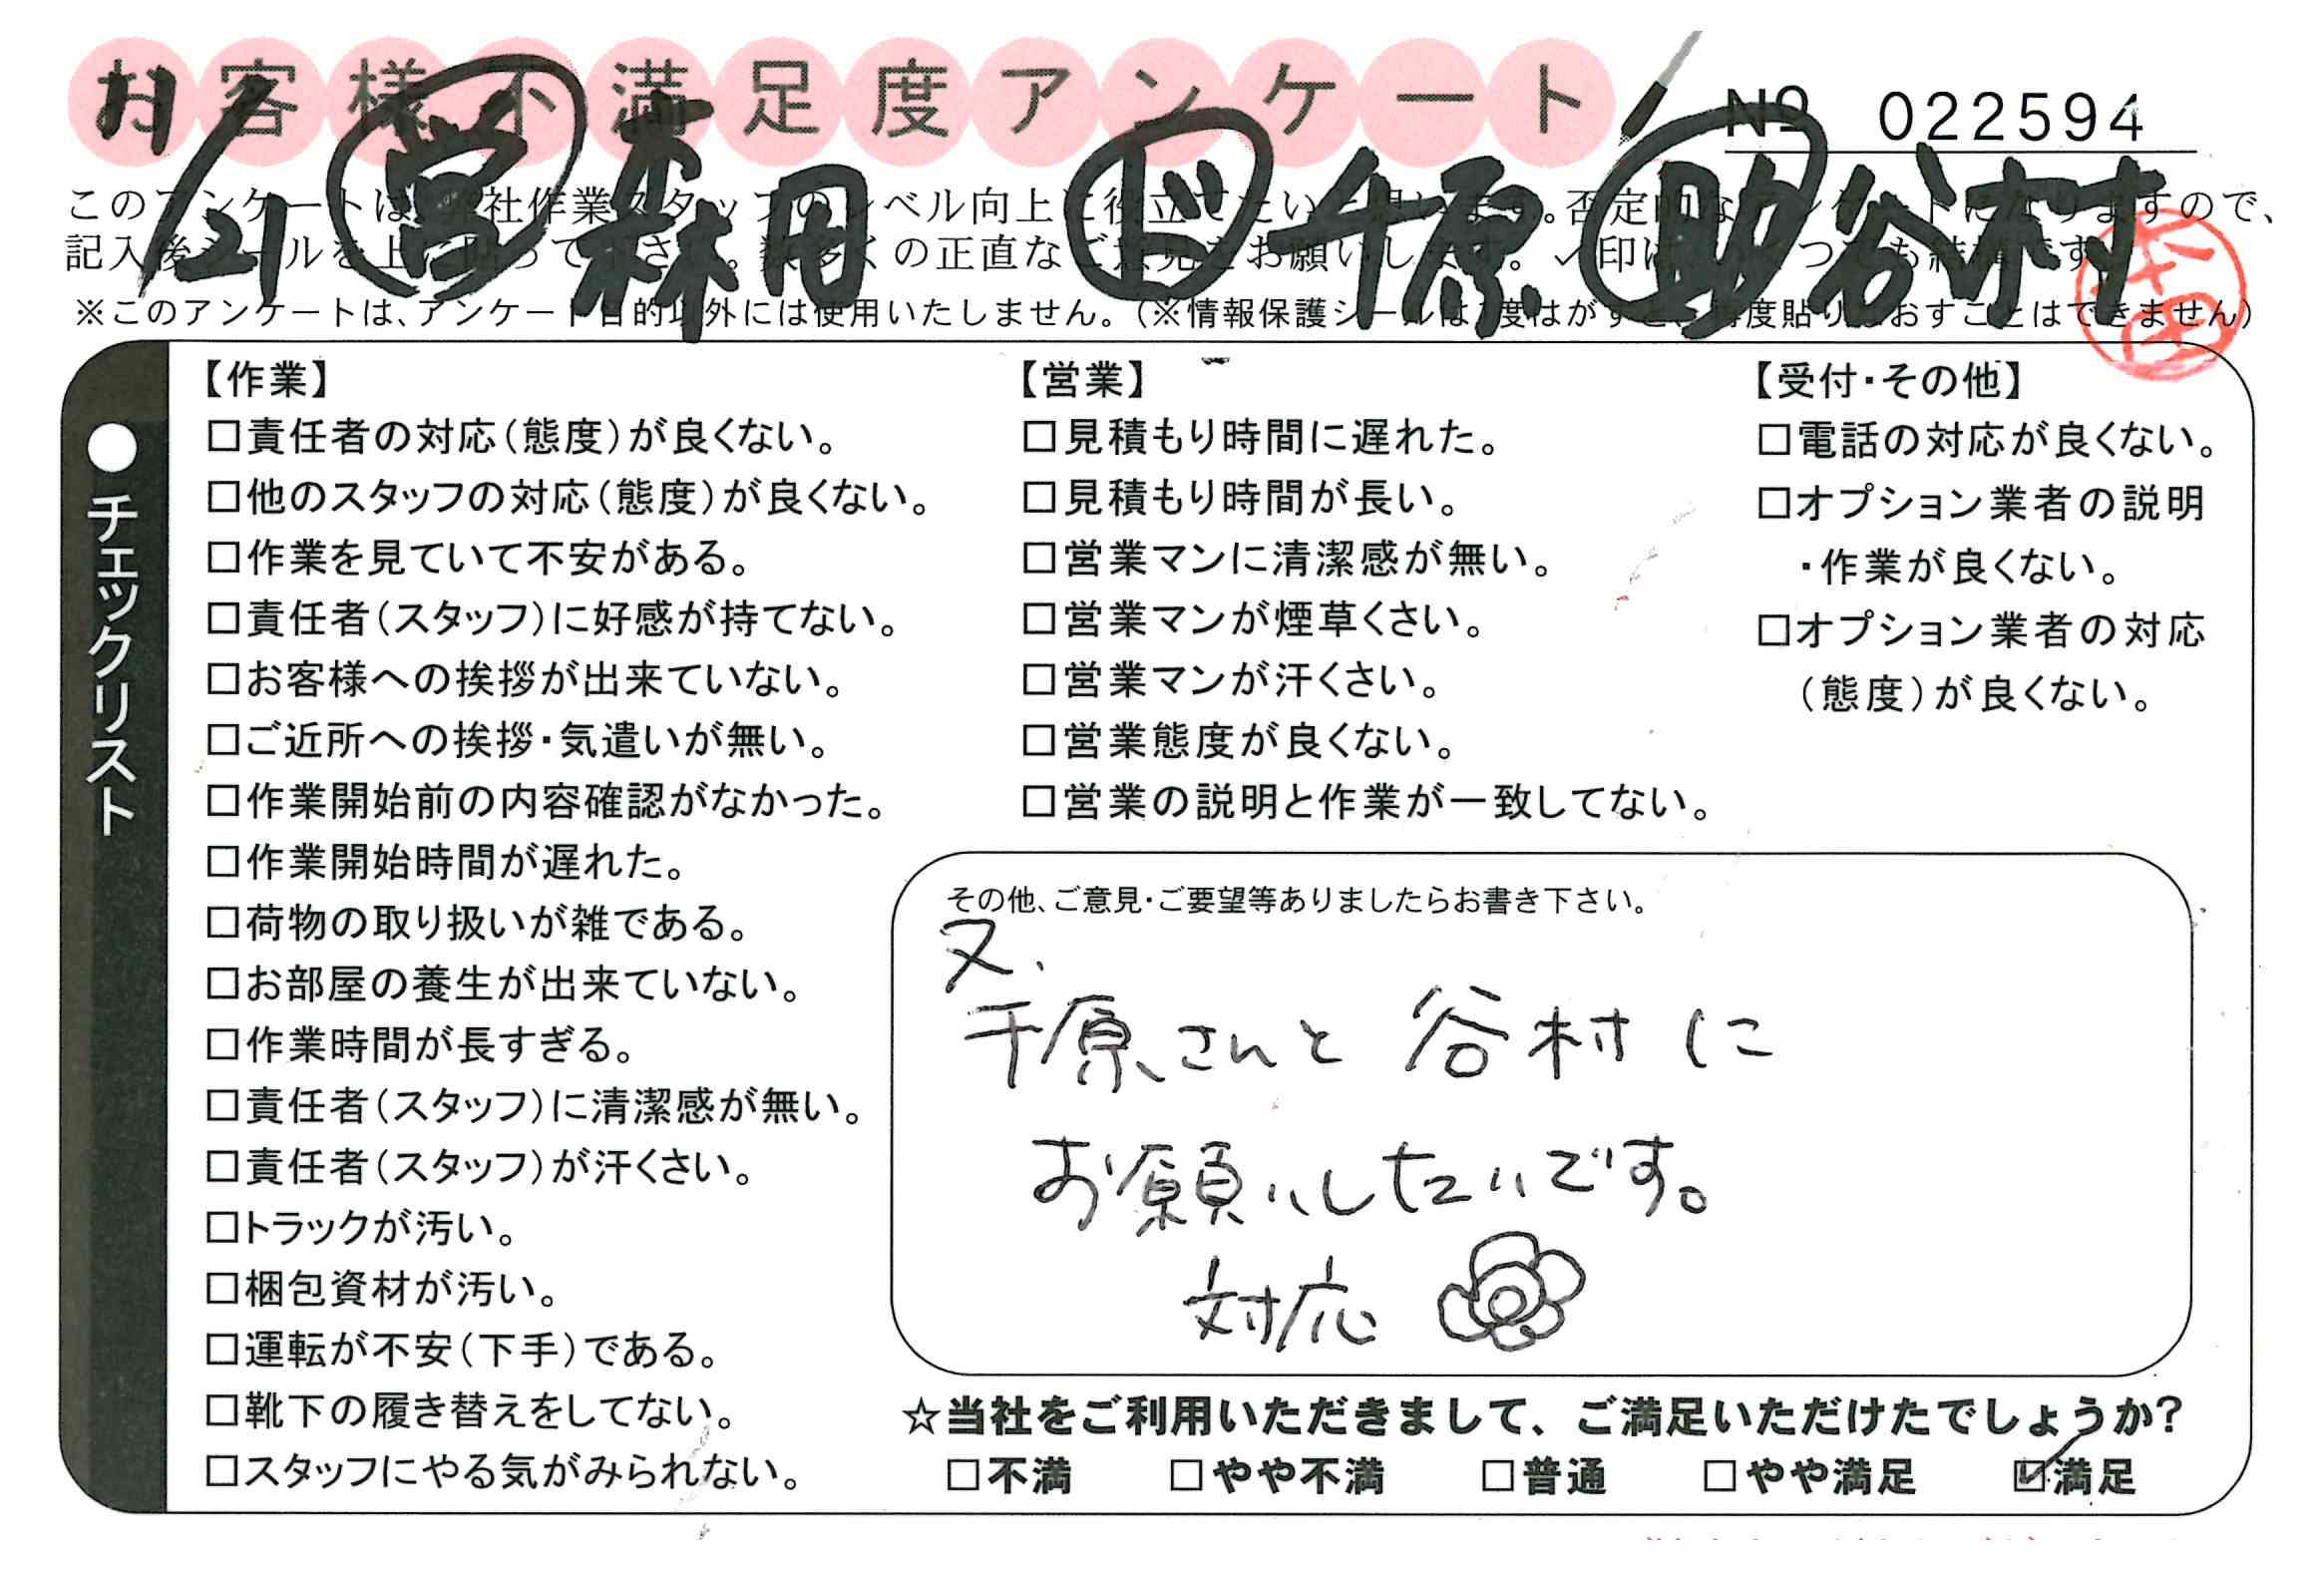 お客様不満足度アンケート
№ 022594
/21 営 森田 千原 助 谷村
※このアンケートは、アンケート目的以外には使用いたしません。(※情報保護シールは
チェックリスト
【作業】
□責任者の対応(態度)が良くない。
□他のスタッフの対応(態度)が良くない。
□作業を見ていて不安がある。
□責任者(スタッフ)に好感が持てない。
□お客様への挨拶が出来ていない。
□ご近所への挨拶・気遣いが無い。
□作業開始前の内容確認がなかった。
□作業開始時間が遅れた。
□荷物の取り扱いが雑である。
□お部屋の養生が出来ていない。
□作業時間が長すぎる。
□責任者(スタッフ)に清潔感が無い。
□責任者(スタッフ)が汗くさい。
□トラックが汚い。
□梱包資材が汚い。
□運転が不安(下手)である。
□靴下の履き替えをしてない。
□スタッフにやる気がみられない。
【営業】
□見積もり時間に遅れた。
□見積もり時間が長い。
□営業マンに清潔感が無い。
□営業マンが煙草くさい。
□営業マンが汗くさい。
□営業態度が良くない。
□営業の説明と作業が一致してない。
【受付・その他】
□電話の対応が良くない。
□オプション業者の説明
・作業が良くない。
□オプション業者の対応
(態度)が良くない。
その他、ご意見・ご要望等ありましたらお書き下さい。
又、
千原さんと 谷村に
お願いしたいです。
対応
☆当社をご利用いただきまして、ご満足いただけたでしょうか?
□不満 □やや不満 □普通 □やや満足 ☑満足